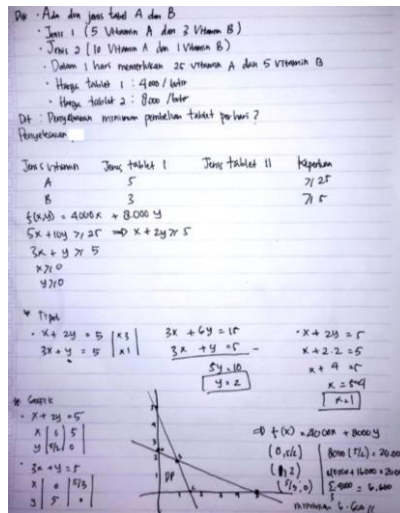 Dik : Ada dua jenis tablet A dan B
· Jenis 1 (5 Vitamin A dan 3 Vitamin B)
· Jenis 2 (10 Vitamin A dan 1 Vitamin B)
· Dalam 1 hari memerlukan 25 vitamin A dan 5 vitamin B
· Harga tablet 1 : 4000 / butir
· Harga tablet 2 : 8.000 / butir
Dit : Pengeluaran minimum pembelian tablet per hari ?
Penyelesaian
Jenis vitamin Jenis tablet I Jenis tablet II Keperluan
A 5 ≥ 25
B 3 ≥ 5
f(x,y) = 4000x + 8.000 y
5x + 10y ≥ 25 => x + 2y ≥ 5
3x + y ≥ 5
x ≥ 0
y ≥ 0
* Titpot
· x + 2y = 5 | x3 |
3x + y = 5 | x1 |
3x + 6y = 15
3x + y = 5 -
5y = 10
y = 2
· x + 2y = 5
x + 2.2 = 5
x + 4 = 5
x = 5-4
x = 1
* Grafik
· x + 2y = 5
x | 0 | 5
y | 5/2 | 0
· 3x + y = 5
x | 0 | 5/3
y | 5 | 0
DP
=> f(x) = 4000x + 8000y
(0, 5/2) 8000 (5/2) = 20.000
(1, 2)
(5/3, 0)
minimum 6.600 //